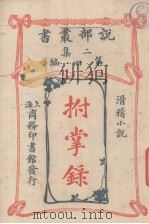 說部叢書
二集
第 編
滑稽小說
拊掌錄
上海
商務印書館發行